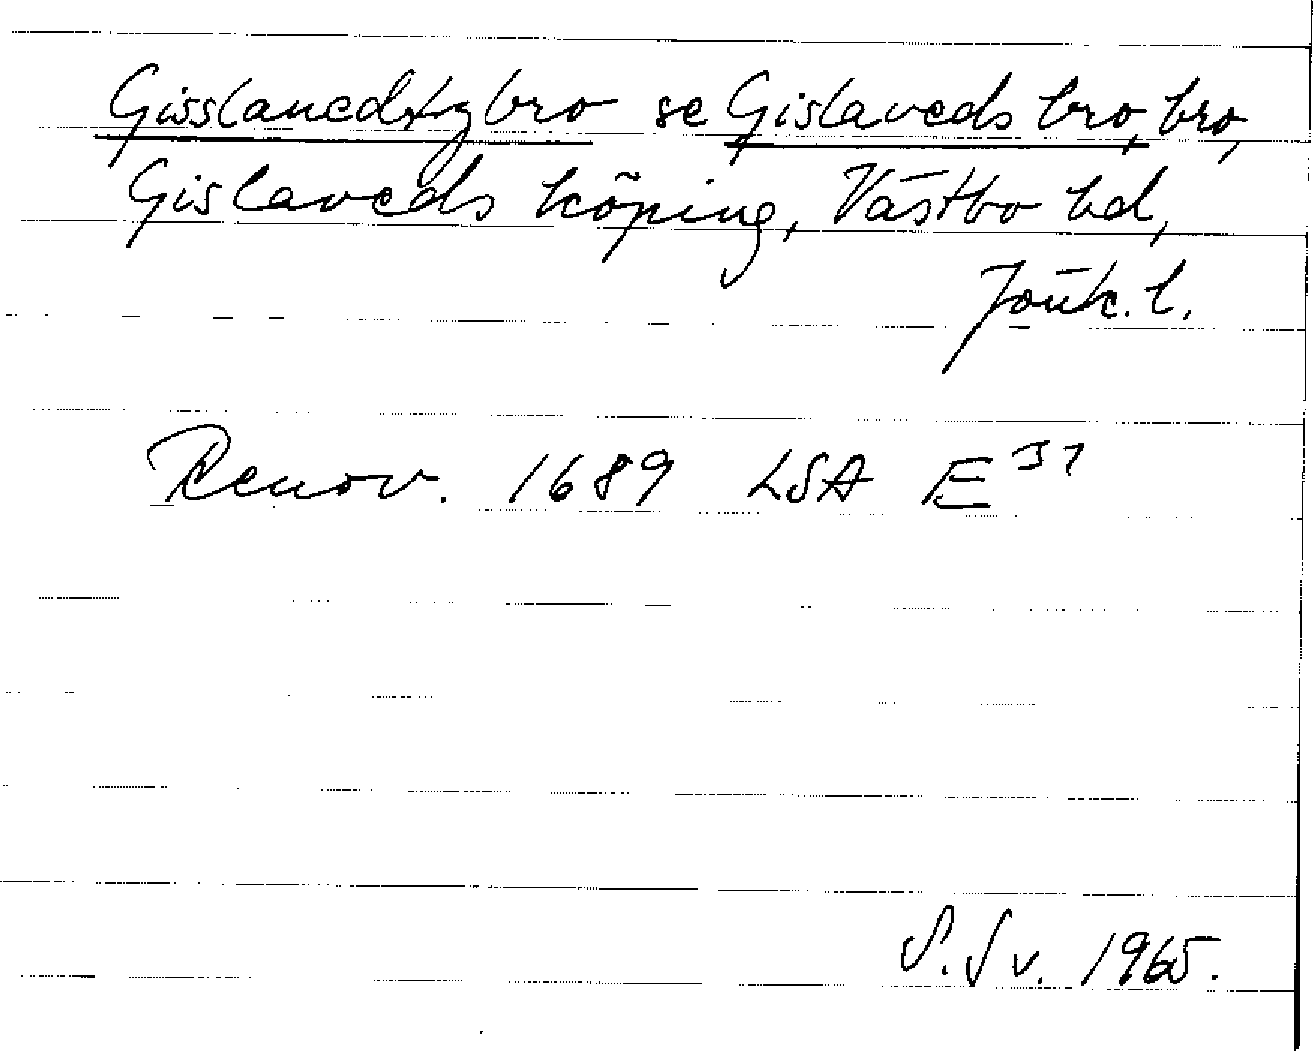 Gisslauedtzbro se Gislaveds bro, bro,
Gislaveds köping, Västbo hd,
Jönk. l.
Renov. 1689 LSA E 31
S. Sv. 1965.